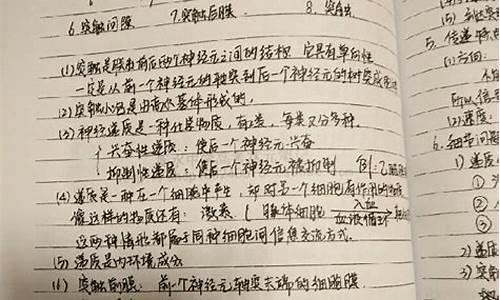 6.突触间隙 7.突触后膜 8.突触
(1)突触是联系前后两个神经元之间的结构 它具有单向性
一定是从前一个神经元的轴突到后一个神经元的树突或
(2)突触小泡是由高尔基体形成的.
(3)神经递质是一种化学物质,有2类,每类又分多种.
兴奋性递质:使后一个神经元兴奋
抑制性递质:使后一个神经元被抑制 例:乙酰
(4)递质是一种在一个细胞中产生,却对另一个细胞有作用的物质
像这样的物质还有:激素(腺体细胞 入血 血液循环
这两种情形都属于同种细胞间信息交流方式.
(5)递质是内环境成分
(6)突触前膜:前一个神经元轴突末端的细胞膜.
(5)
5.传递特
(1)方向:
所以信
(2)速度:
6.细节问
1)递质
①
②
③
2)递质
3)突触